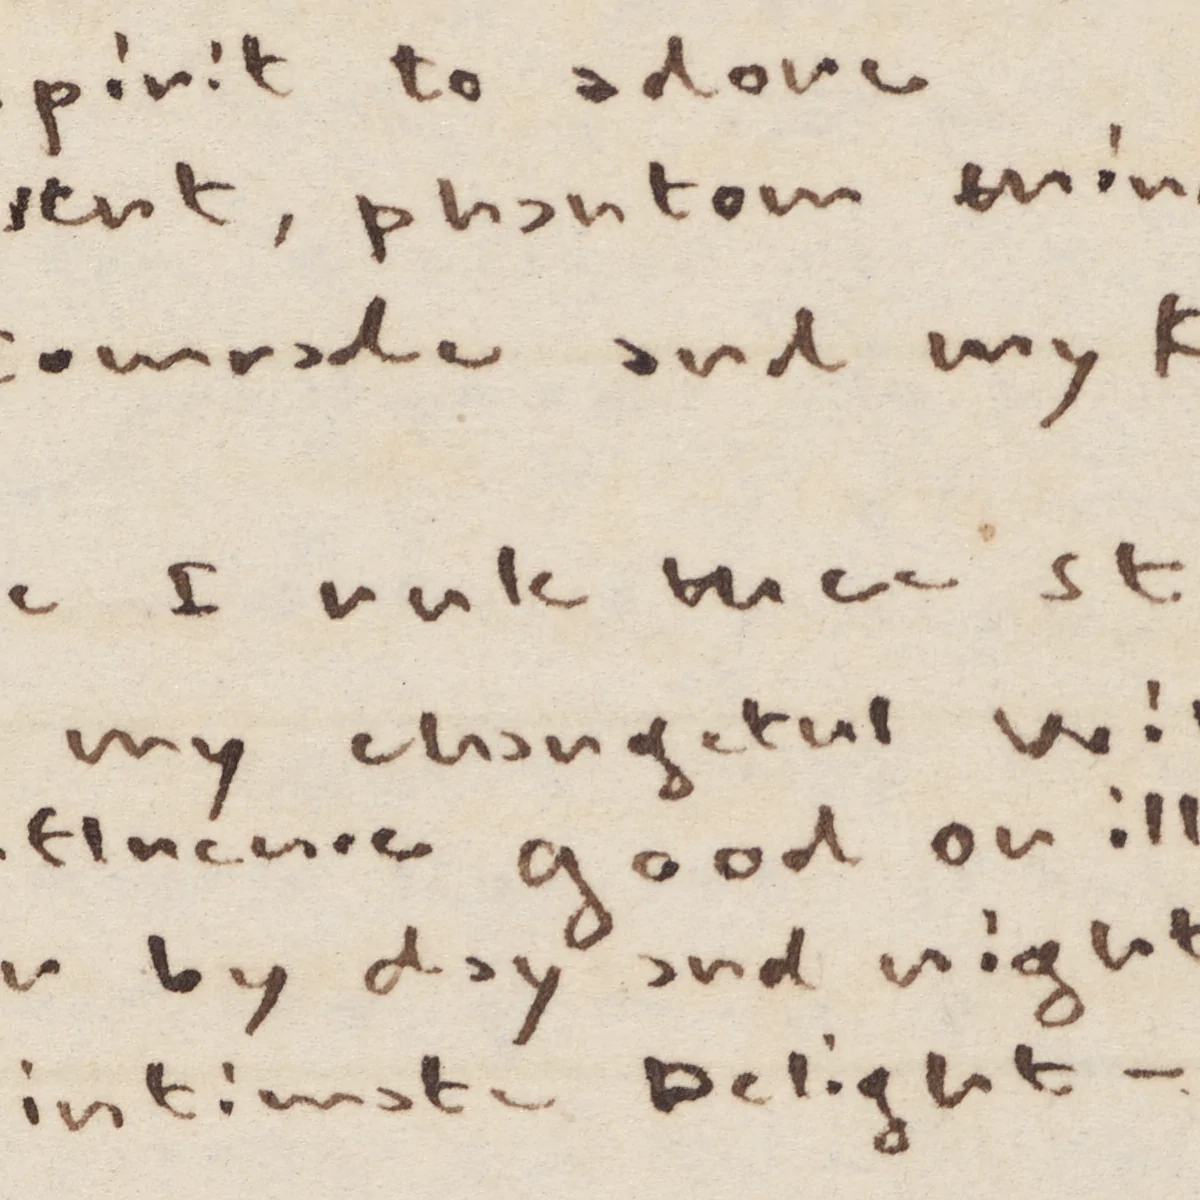 pirit to adore
sent, phantom
comrade and my
I rule thee st
my changeful
fluence good or ill
by day and night
intimate Delight –